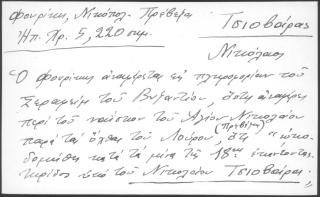 Φουρίκης, Νικόπολ. Πρέβεζα
Ἠπ. Χρ. 5, 220 σημ.
Τσιοβαίρας
Νικόλαος
Ὁ Φουρίκης ἀναφέρεται εἰς πληροφορίαν τοῦ
Σεραφεὶμ τοῦ Βυζαντίου, ὅστις ἀναφέρει
περὶ τοῦ ναΐσκου τοῦ Ἁγίου Νικολάου
παρὰ τὰς ὄχθας τοῦ Λούρου, (Πρέβεζα) ὅτι "ᾠκο-
δομήθη κατὰ τὰ μέσα τῆς 18ης ἑκατονταε-
τηρίδος ὑπὸ τοῦ Νικολάου Τσιοβαίρα.